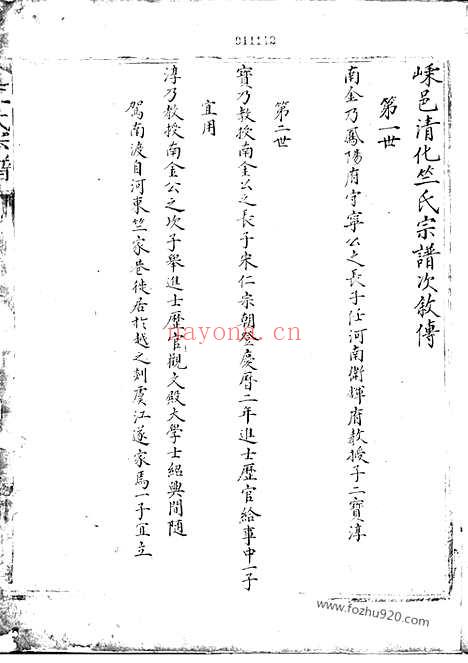 011112
嵊邑清化竺氏宗譜次敘傳
第一世
南金乃鳳陽府守寧公之長子任河南衛輝府教授子二寶淳
第二世
寶乃教授南金公之長子宋仁宗朝登慶曆二年進士歷官給事中一子
宜用
淳乃教授南金公之次子舉進士歷官觀文殿大學士紹興間随
駕南渡自河東竺家巷徙居於越之剡虞江遂家焉一子宜立
氏宗譜
nayona.cn
www.fozhu920.com